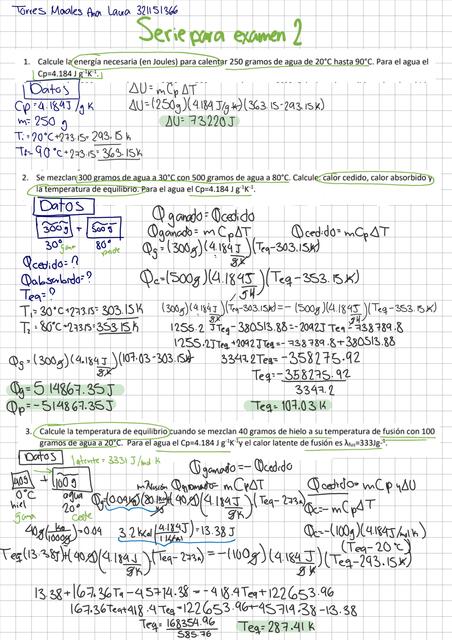 Torres Morales Ana Laura 321151366
Serie para examen 2
1. Calcule la energía necesaria (en Joules) para calentar 250 gramos de agua de 20°C hasta 90°C. Para el agua el
Cp=4.184 J g⁻¹K⁻¹.
Datos
Cp=4.184J/g K
m=250 g
T₁=20°C+273.15=293.15K
T₂=90°C+273.15=363.15K
ΔU=mCpΔT
ΔU=(250g)(4.184J/g·K)(363.15-293.15K)
ΔU=73220J
2. Se mezclan 300 gramos de agua a 30°C con 500 gramos de agua a 80°C. Calcule: calor cedido, calor absorbido y
la temperatura de equilibrio. Para el agua el Cp=4.184 J g⁻¹K⁻¹.
Datos
300g + 500g
30° gana 80° pierde
Qcedido=?
Qabsorbido=?
Teq=?
T₁=30°C+273.15=303.15K
T₂=80°C+273.15=353.15K
Qganado=Qcedido
Qganado=mCpΔT Qcedido=mCpΔT
Qg=(300g)(4.184J/gK)(Teq-303.15K)
Qc=(500g)(4.184J/gK)(Teq-353.15K)
(300g)(4.184J/gK)(Teq-303.15K)=-(500g)(4.184J/gK)(Teq-353.15K)
1255.2 J Teq-380513.88=-2092J Teq+738789.8
1255.2J Teq+2092J Teq=-738789.8+380513.88
3347.2Teq=-358275.92
Teq=-358275.92/3347.2
Teq=107.03K
Qg=(300g)(4.184J/gK)(107.03-303.15K)
Qg=514867.35J
Qp=-514867.35J
3. Calcule la temperatura de equilibrio cuando se mezclan 40 gramos de hielo a su temperatura de fusión con 100
gramos de agua a 20°C. Para el agua el Cp=4.184 J g⁻¹K⁻¹ y el calor latente de fusión es λfus=333Jg⁻¹.
Datos
latente=3331 J/mol K
40g + 100g
0°C agua
hiel 20°
gana cede
40g(kg/1000g)=0.04
Qganado=-Qcedido
Qcedido=mCpΔU
Qc=-mCpΔT
Qc=-(100g)(4.184J/mol K)
(Teq-20°C)
3.2kcal(4.184J/1kcal)=13.38J
Teq(13.38J)+(40g)(4.184J/gK)(Teq-273K)=-(100g)(4.184J/gK)(Teq-293.15K)
13.38+167.36Te-45714.38=-418.4Teq+122653.96
167.36Teq+418.4Teq=122653.96+45719.38-13.38
Teq=168354.96/585.76
Teq=287.41K